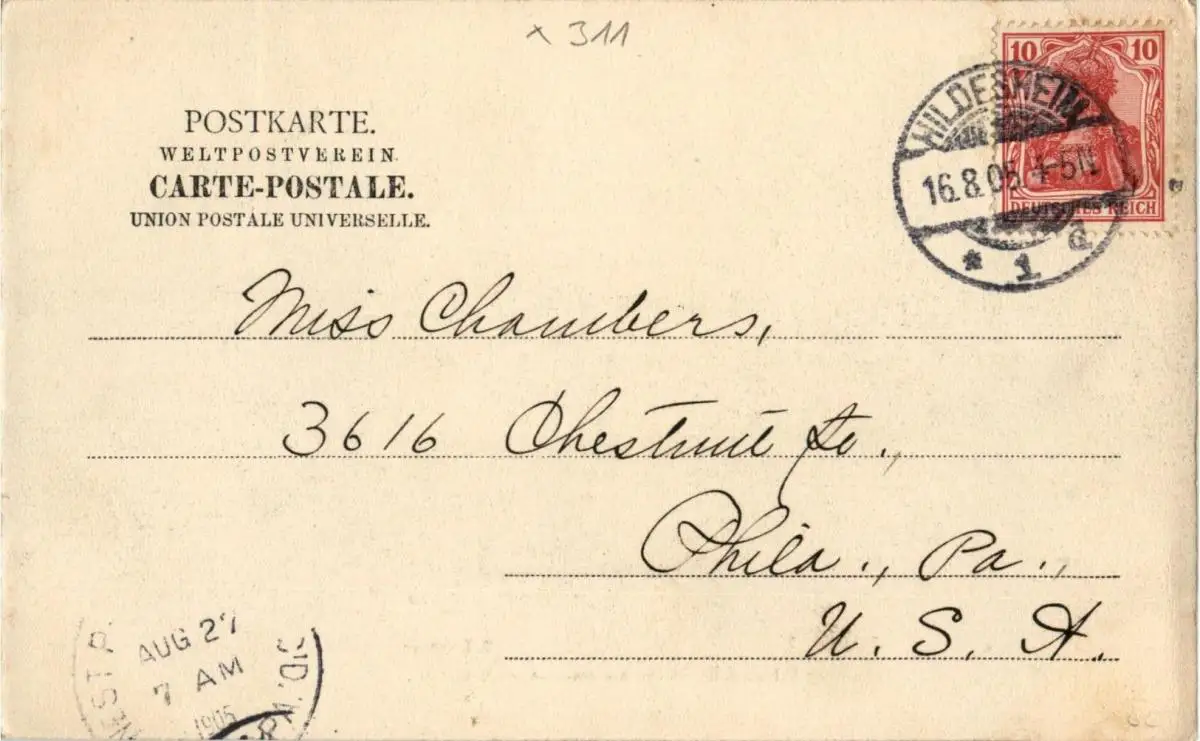 x 311
POSTKARTE.
WELTPOSTVEREIN.
CARTE-POSTALE.
UNION POSTALE UNIVERSELLE.
10 10
DEUTSCHES REICH
HILDESHEIM
16.8.05. 4-5N
* 1 d
Miss Chambers,
3616 Chestnut St.,
Phila., Pa.,
U. S. A.
AUG 27
7 AM
1905